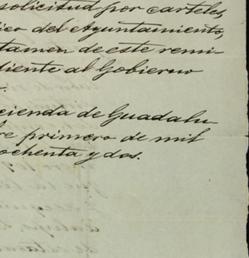 solicitud por carteles
del Ayuntamiento,
tamen de este remi-
diente al Gobierno
cienda de Guadalu
re primero de mil
ochenta y dos.